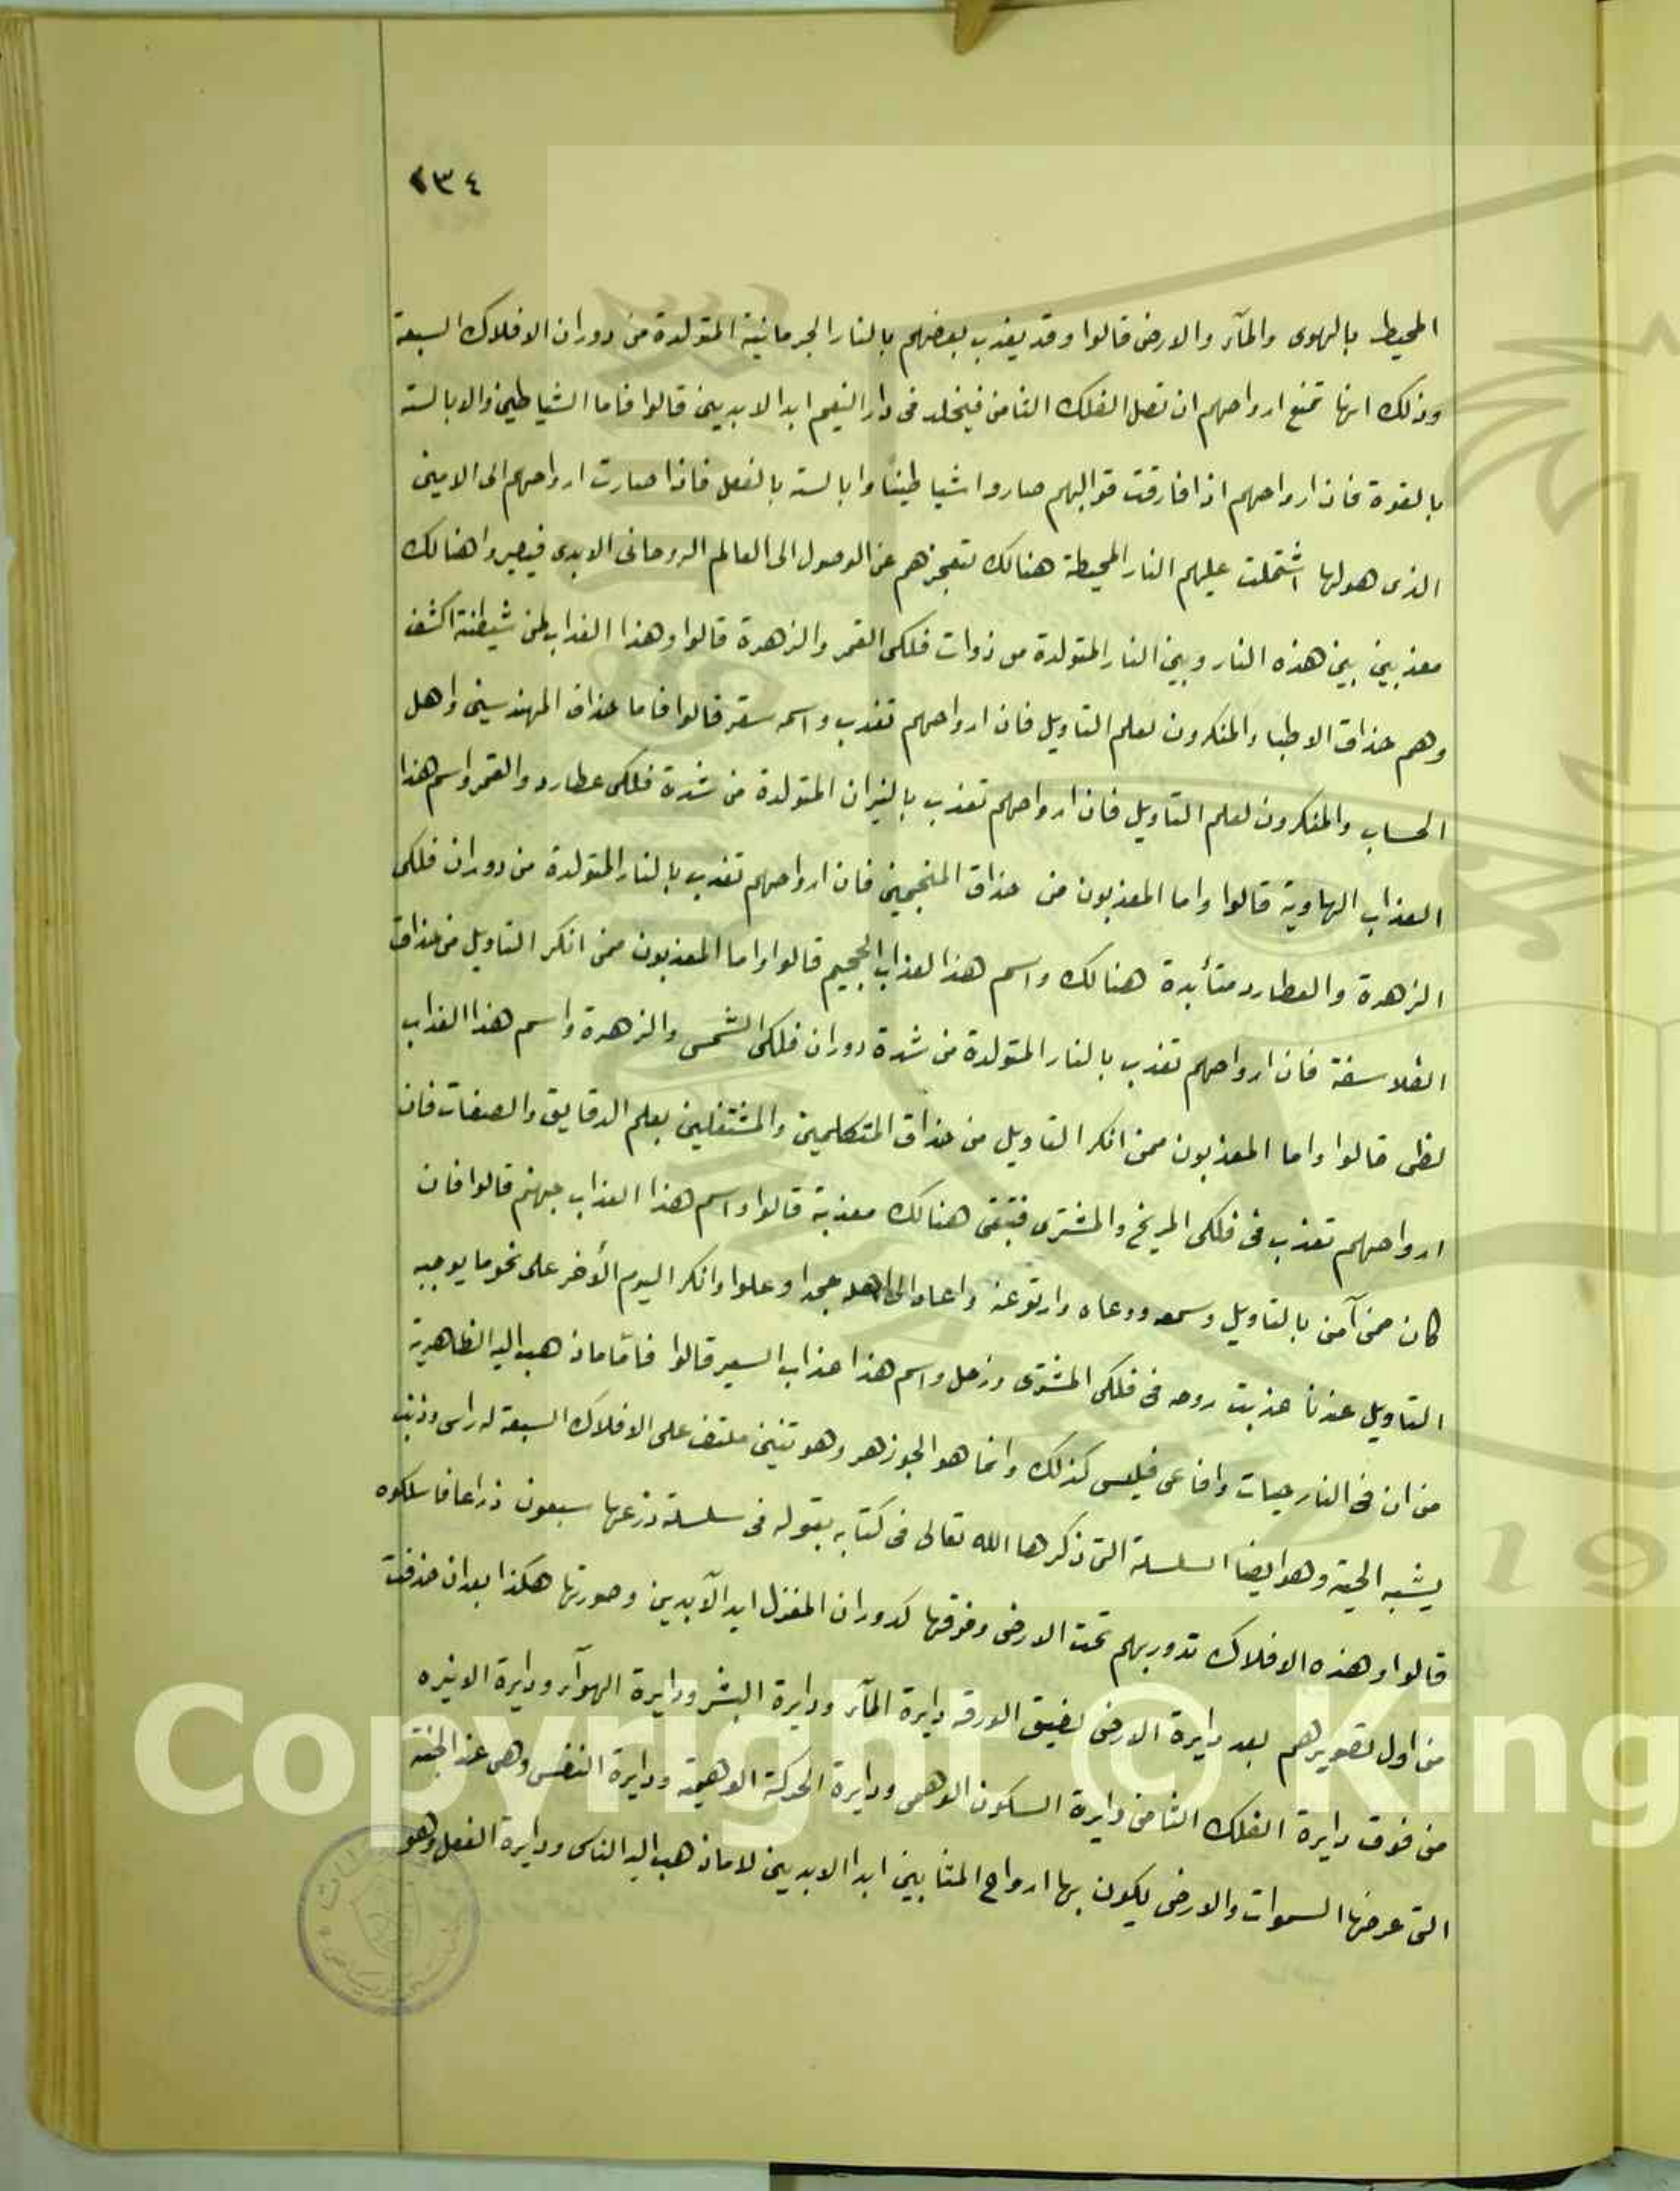 ٢٣٤
المحيط بالهوى والمآء والارض قالوا وقد يعذب بعضهم بالنار الجرمانية المتولدة من دوران الافلاك السبعة
وذلك انها تمنع ارواحهم ان تصل الفلك الثامن فيخلد فى دار النعيم ابد الابديين قالوا فاما الشياطين والابالسة
بالقوة فان ارواحهم اذا فارقت قوالبهم صاروا شياطينًا وابالسة بالفعل فاذا صارت ارواحهم الى الامين
الذى هولها اشتملت عليهم النار المحيطة هنالك تعجزهم عن الوصول الى العالم الروحانى الابدى فيصيروا هنالك
معذبين بين هذه النار وبين النار المتولدة من ذوات فلكى القمر والزهرة قالوا وهذا العذاب لمن شيطنته اكشف
وهم حذاق الاطباء المنكرون لعلم التاويل فان ارواحهم تعذب واسمه سقر قالوا فاما حذاق المهندسين واهل
الحساب والمنكرون لعلم التاويل فان ارواحهم تعذب بالنيران المتولدة من شدة فلكى عطارد والقمر واسم هذا
العذاب الهاوية قالوا واما المعذبون من حذاق المنجمين فان ارواحهم تعذب بالنار المتولدة من دوران فلكى
الزهرة والعطارد متأبدة هنالك واسم هذا لعذاب الجحيم قالوا واما المعذبون ممن انكر التاويل من حذاق
الفلاسفة فان ارواحهم تعذب بالنار المتولدة من شدة دوران فلكى الشمس والزهرة واسم هذا العذاب
لظى قالوا واما المعذبون ممن انكر التاويل من حذاق المتكلمين والمشتغلين بعلم الدقايق والصفات فان
ارواحهم تعذب فى فلكى المريخ والمشترى فتبقى هنالك معذبة قالوا واسم هذا العذاب جهنم قالوا فان
كان ممن آمن بالتاويل وسمعه ووعاه وارتو عنه واعاد الى اهله جحدا وعلوا وانكر اليوم الأخر على نحو ما يوجبه
التاويل عندنا عذبت روحه فى فلكى المشترى وزحل واسم هذا عذاب السعير قالوا فامّا ماذهب اليه الظاهرية
من ان فى النار حيات وافاعى فليس كذلك وانما هو الجوزهر وهو تنين ملتف على الافلاك السبعة له راس وذنب
يشبه الحية وهو ايضا السلسلة التى ذكرها الله تعالى فى كتابه بقوله فى سلسلة ذرعها سبعون ذراعا فاسلكوه
قالوا وهذه الافلاك تدور بهم تحت الارض وفوقها كدوران المغزل ابد الآبدين وصورتها هكذا بعد ان حذفت
من اول تصويرهم بعد دايرة الارض لضيق الورقه دايرة المآء ودايرة البشر ودايرة الهوآء ودايرة الاثيره
من فوق دايرة الفلك الثامن دايرة السكون الوهمى ودايرة الحركة الوهيمة ودايرة النفس وهى عند الجنة
التى عرضها السموات والارض يكون بها ارواح المثابين ابدا الابديين لا ماذهب اليه الناس ودايرة الفعل وهو
Copyright © King
19